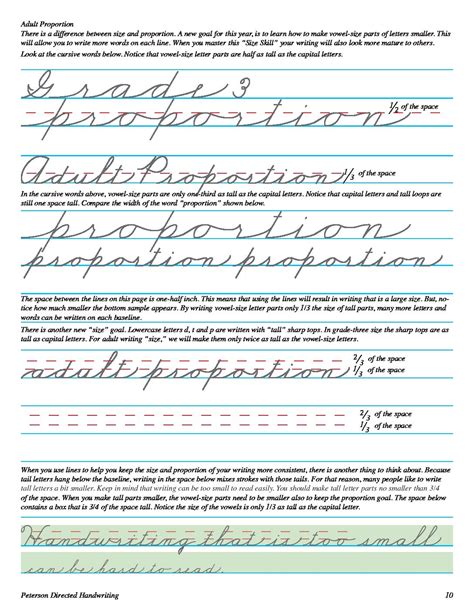 Adult Proportion
There is a difference between size and proportion. A new goal for this year, is to learn how to make vowel-size parts of letters smaller. This
will allow you to write more words on each line. When you master this "Size Skill" your writing will also look more mature to others.
Look at the cursive words below. Notice that vowel-size letter parts are half as tall as the capital letters.
Grade 3
proportion 1/2 of the space
Adult Proportion 1/3 of the space
In the cursive words above, vowel-size parts are only one-third as tall as the capital letters. Notice that capital letters and tall loops are
still one space tall. Compare the width of the word "proportion" shown below.
proportion
proportion proportion
The space between the lines on this page is one-half inch. This means that using the lines will result in writing that is a large size. But, no-
tice how much smaller the bottom sample appears. By writing vowel-size letter parts only 1/3 the size of tall parts, many more letters and
words can be written on each baseline.
There is another new "size" goal. Lowercase letters d, t and p are written with "tall" sharp tops. In grade-three size the sharp tops are as
tall as capital letters. For adult writing "size," we will make them only twice as tall as the vowel-size letters.
2/3 of the space
adult proportion 1/3 of the space
2/3 of the space
1/3 of the space
When you use lines to help you keep the size and proportion of your writing more consistent, there is another thing to think about. Because
tall letters hang below the baseline, writing in the space below mixes strokes with those tails. For that reason, many people like to write
tall letters a bit smaller. Keep in mind that writing can be too small to read easily. You should make tall letter parts no smaller than 3/4
of the space. When you make tall parts smaller, the vowel-size parts need to be smaller also to keep the proportion goal. The space below
contains a box that is 3/4 of the space tall. Notice the size of the vowels is only 1/3 as tall as the capital letter.
Handwriting that is too small
can be hard to read.
Peterson Directed Handwriting 10